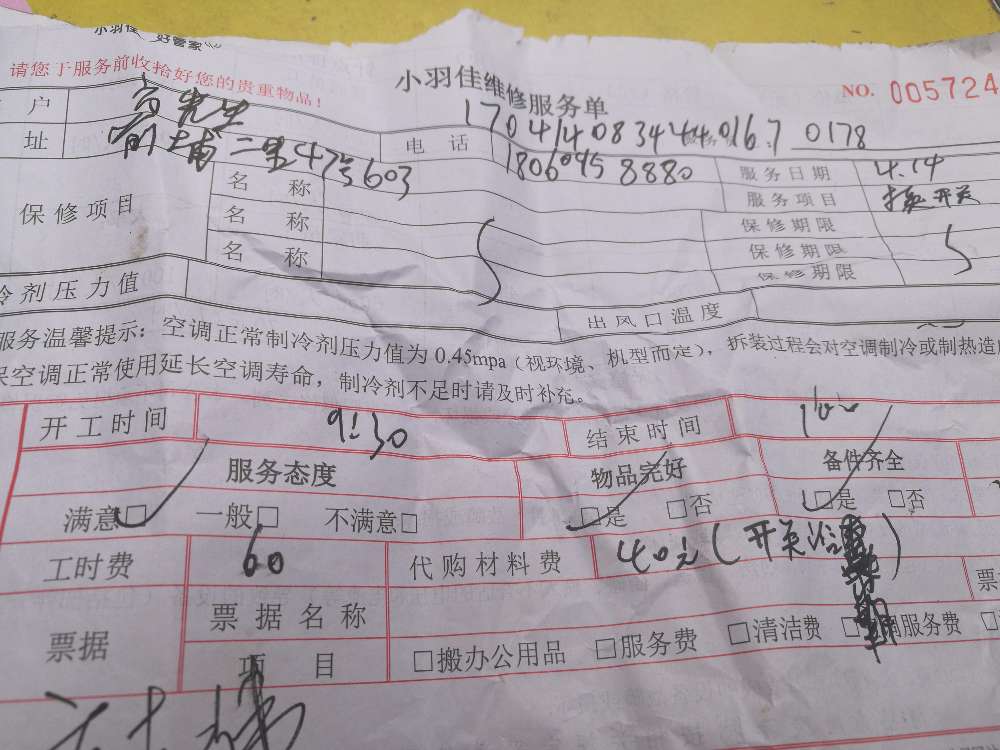 小羽佳 好管家
请您于服务前收拾好您的贵重物品！
小羽佳维修服务单
NO. 005724
户
1704140834440167 0178
址 二里47号603 电 话 18060958880 服务日期 4.14
保修项目 名 称 服务项目 换开关
名 称 保修期限
名 称 保修期限
保修期限
冷剂压力值 出风口温度
服务温馨提示：空调正常制冷剂压力值为 0.45mpa（视环境、机型而定），拆装过程会对空调制冷或制热造
保空调正常使用延长空调寿命，制冷剂不足时请及时补充。
开工时间 9:30 结束时间
服务态度 物品完好 备件齐全
满意□ 一般□ 不满意□ □是 □否 □是 □否
工时费 60 代购材料费 40元(开关
票据 票据名称 票
项 目 □搬办公用品 □服务费 □清洁费 服务费